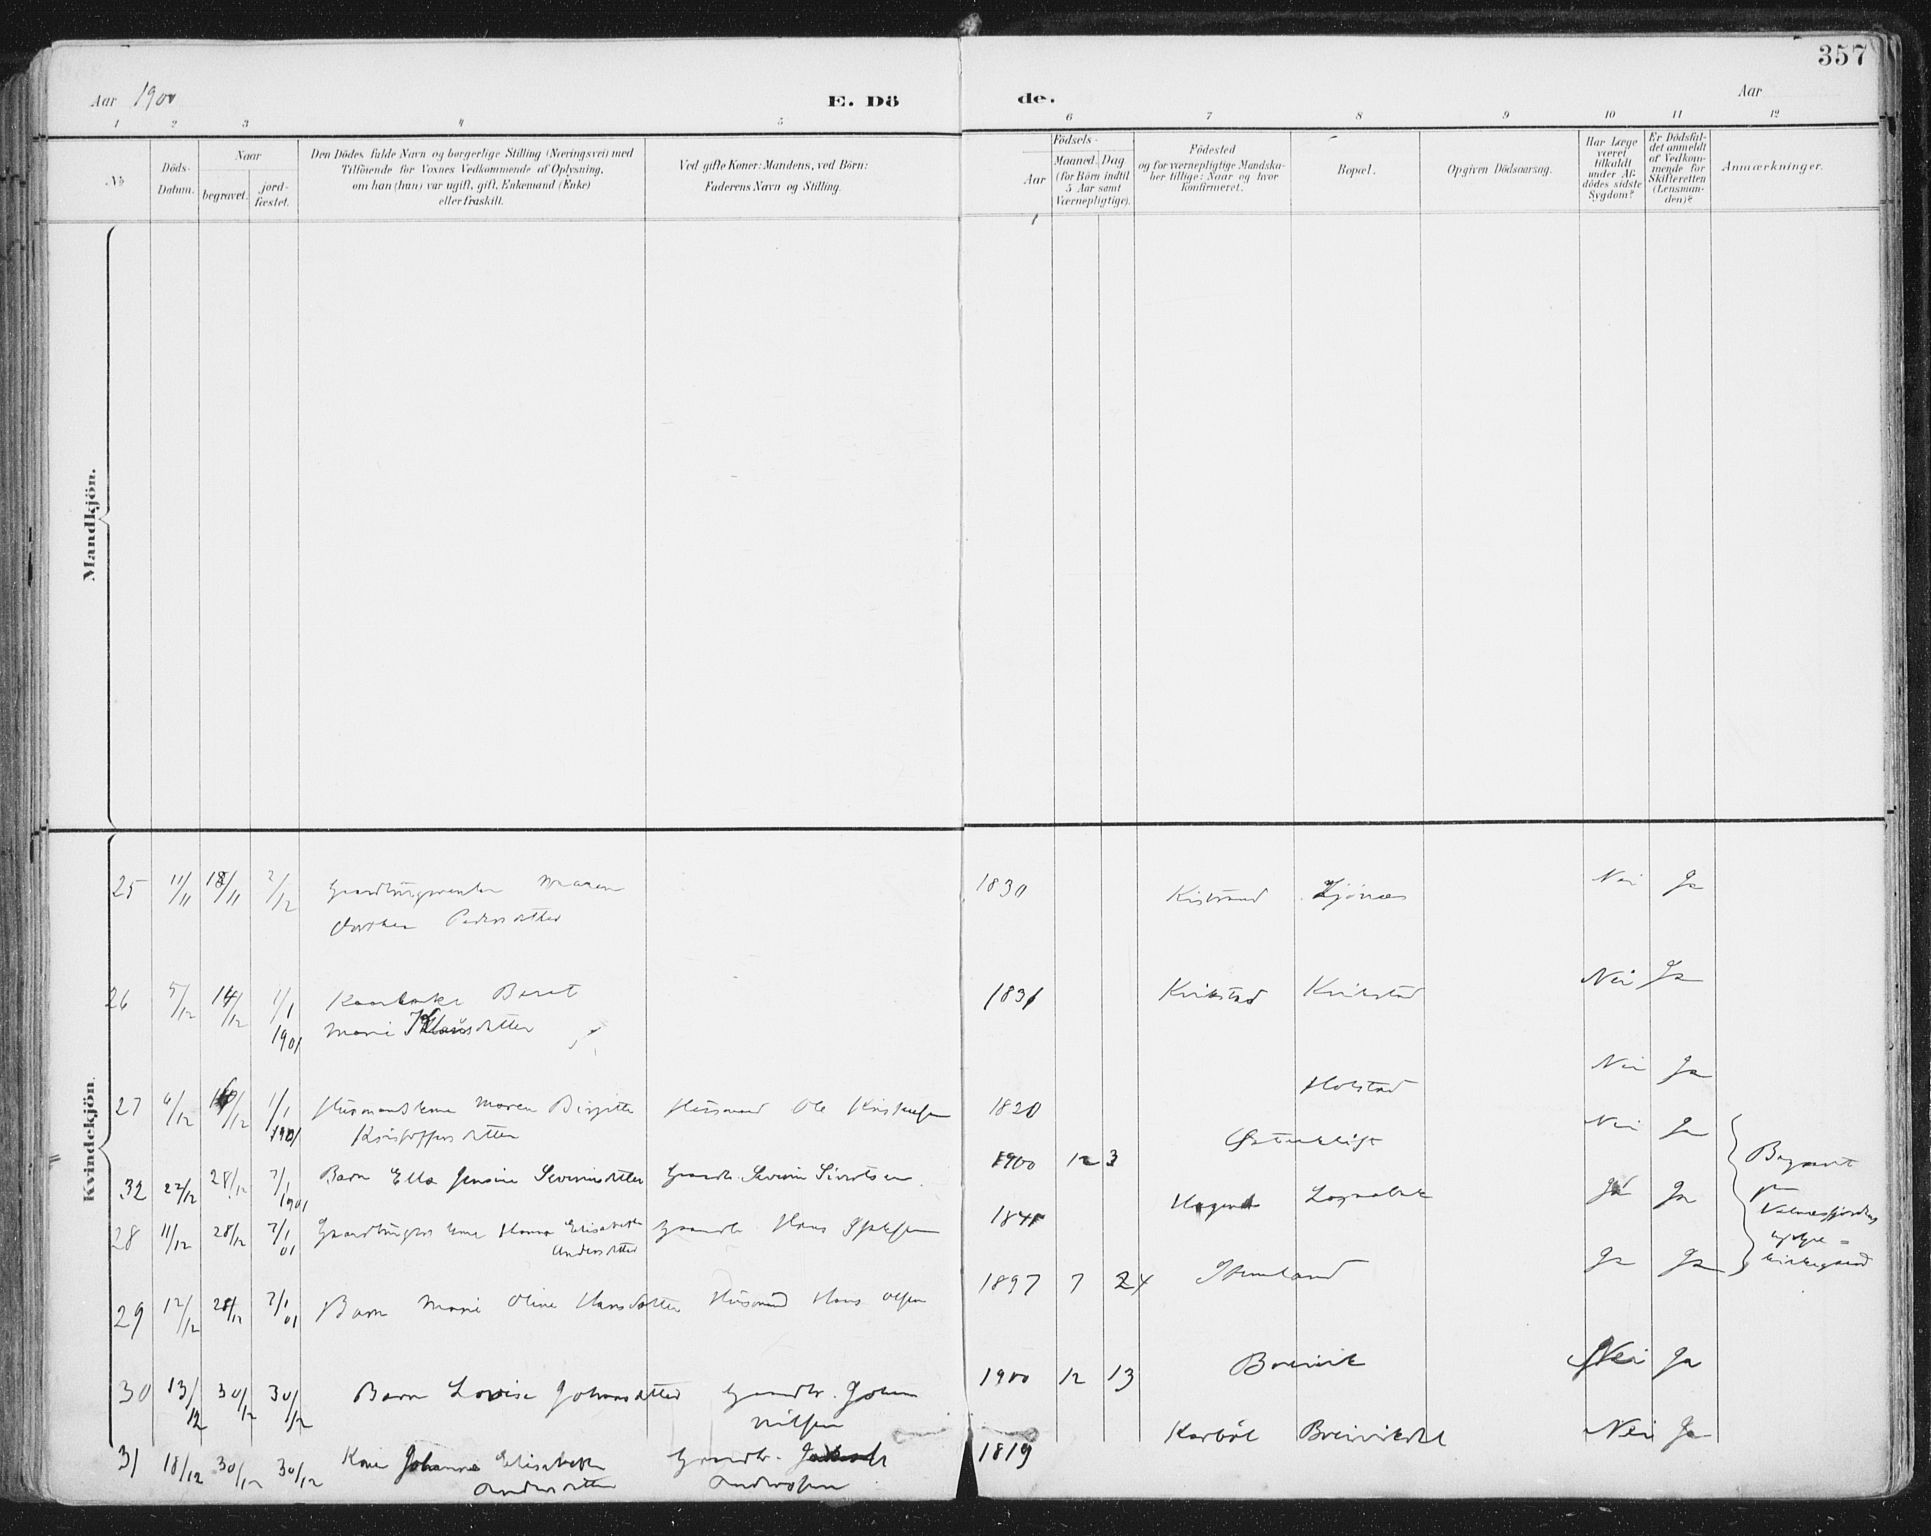 357
Aar 1900
E. Dö
de.
Aar
1 2 3 4 5 6 7 8 9 10 11 12
No
Döds-
Datum.
Naar
begravet.
jord-
fæstet.
Den Dödes fulde Navn og borgerlige Stilling (Næringsvei) med
Tilföiende for Voxnes Vedkommende af Oplysning,
om han (hun) var ugift, gift, Enkemand (Enke)
eller fraskilt.
Ved gifte Koner: Mandens, ved Börn:
Faderens Navn og Stilling.
Födsels-
Aar
Maaned. Dag
(for Börn indtil
5 Aar samt
Værnepligtige).
Födested
og for værnepligtige Mandska-
ber tillige: Naar og hvor
konfirmeret.
Bopæl.
Opgiven Dödsaarsag.
Har Læge
været
tilkaldt
under Af-
dödes sidste
Sygdom?
Er Dödsfal-
det anmeldt
af Vedkom-
mende for
Skifteretten
(Lensman-
den)?
Anmærkninger.
Mandkjön.
Kvindekjön.
25 11/11 18/11 2/12 Maren 1830 Kistrand Nei Ja
Dorthea Pedersdatter
26 5/12 14/12 1/1 Berit 1831 Kvikstad Kvikstad Nei Ja
1901 Marie Klausdatter
Holstad Nei Ja
27 6/12 16/12 1/1 Husmandskone Maren Birgitte Husmand Ole 1820
1901 Kristoffersdatter
Østerkløft Nei Ja
32 22/12 28/12 7/1 Barn Ella Jensine Severinsdatter Gaardbr. Severin Sivertsen 1900 12 3
1901
Ja Ja
28 11/12 28/12 7/1 Gaardbrugers Kone Hanna Elisabeth Gaardbr. Hans 1841
01 Andersdatter
Begravet
paa
Valnesfjordens
kirkegaard
Ja Ja
29 12/12 28/12 7/1 Barn Marie Oline Hansdatter Husmand Hans Olsen 1897 7 24
01
Breivik Nei Ja
30 13/12 30/12 30/12 Barn Lovise Johansdatter Gaardbr. Johan 1900 12 13
Nilsen
Karbøl Nei Ja
31 18/12 30/12 30/12 Kone Johanna Elisabeth Gaardbr. 1819
Andersdatter